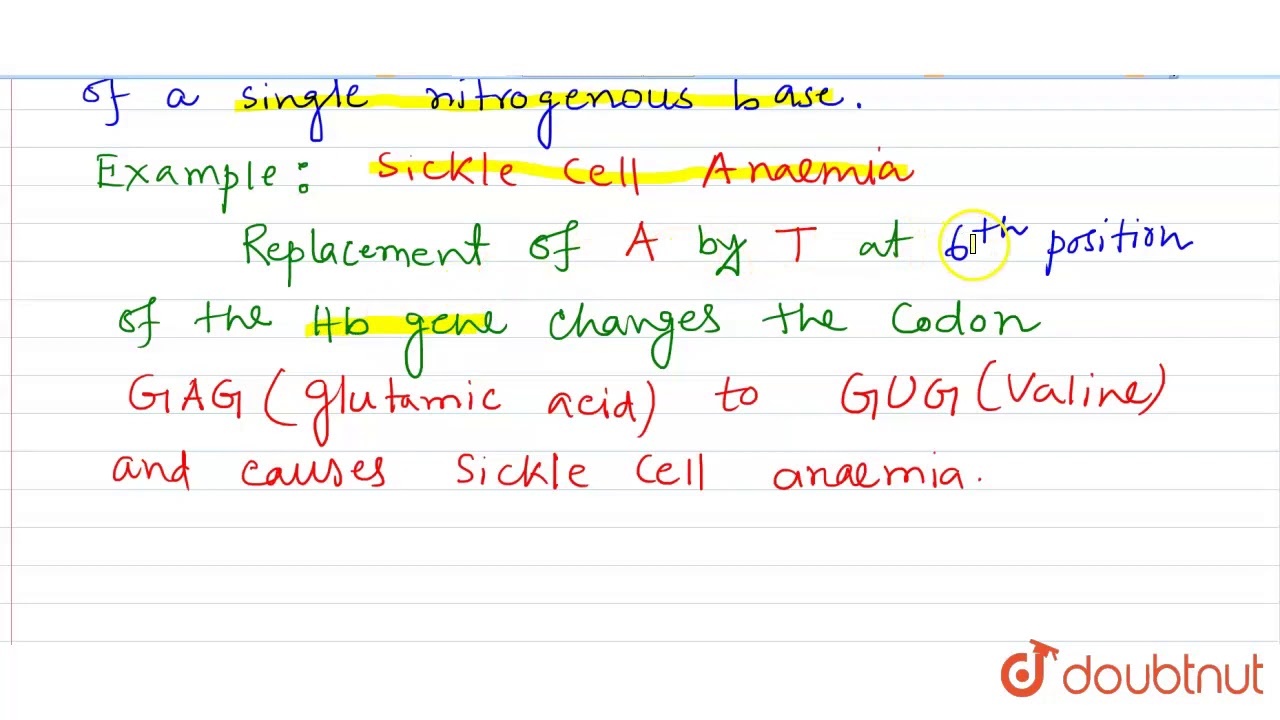 of a single nitrogenous base.
Example: Sickle Cell Anaemia
Replacement of A by T at 6th position
of the Hb gene changes the Codon
GAG (glutamic acid) to GUG (Valine)
and causes Sickle Cell anaemia.
doubtnut